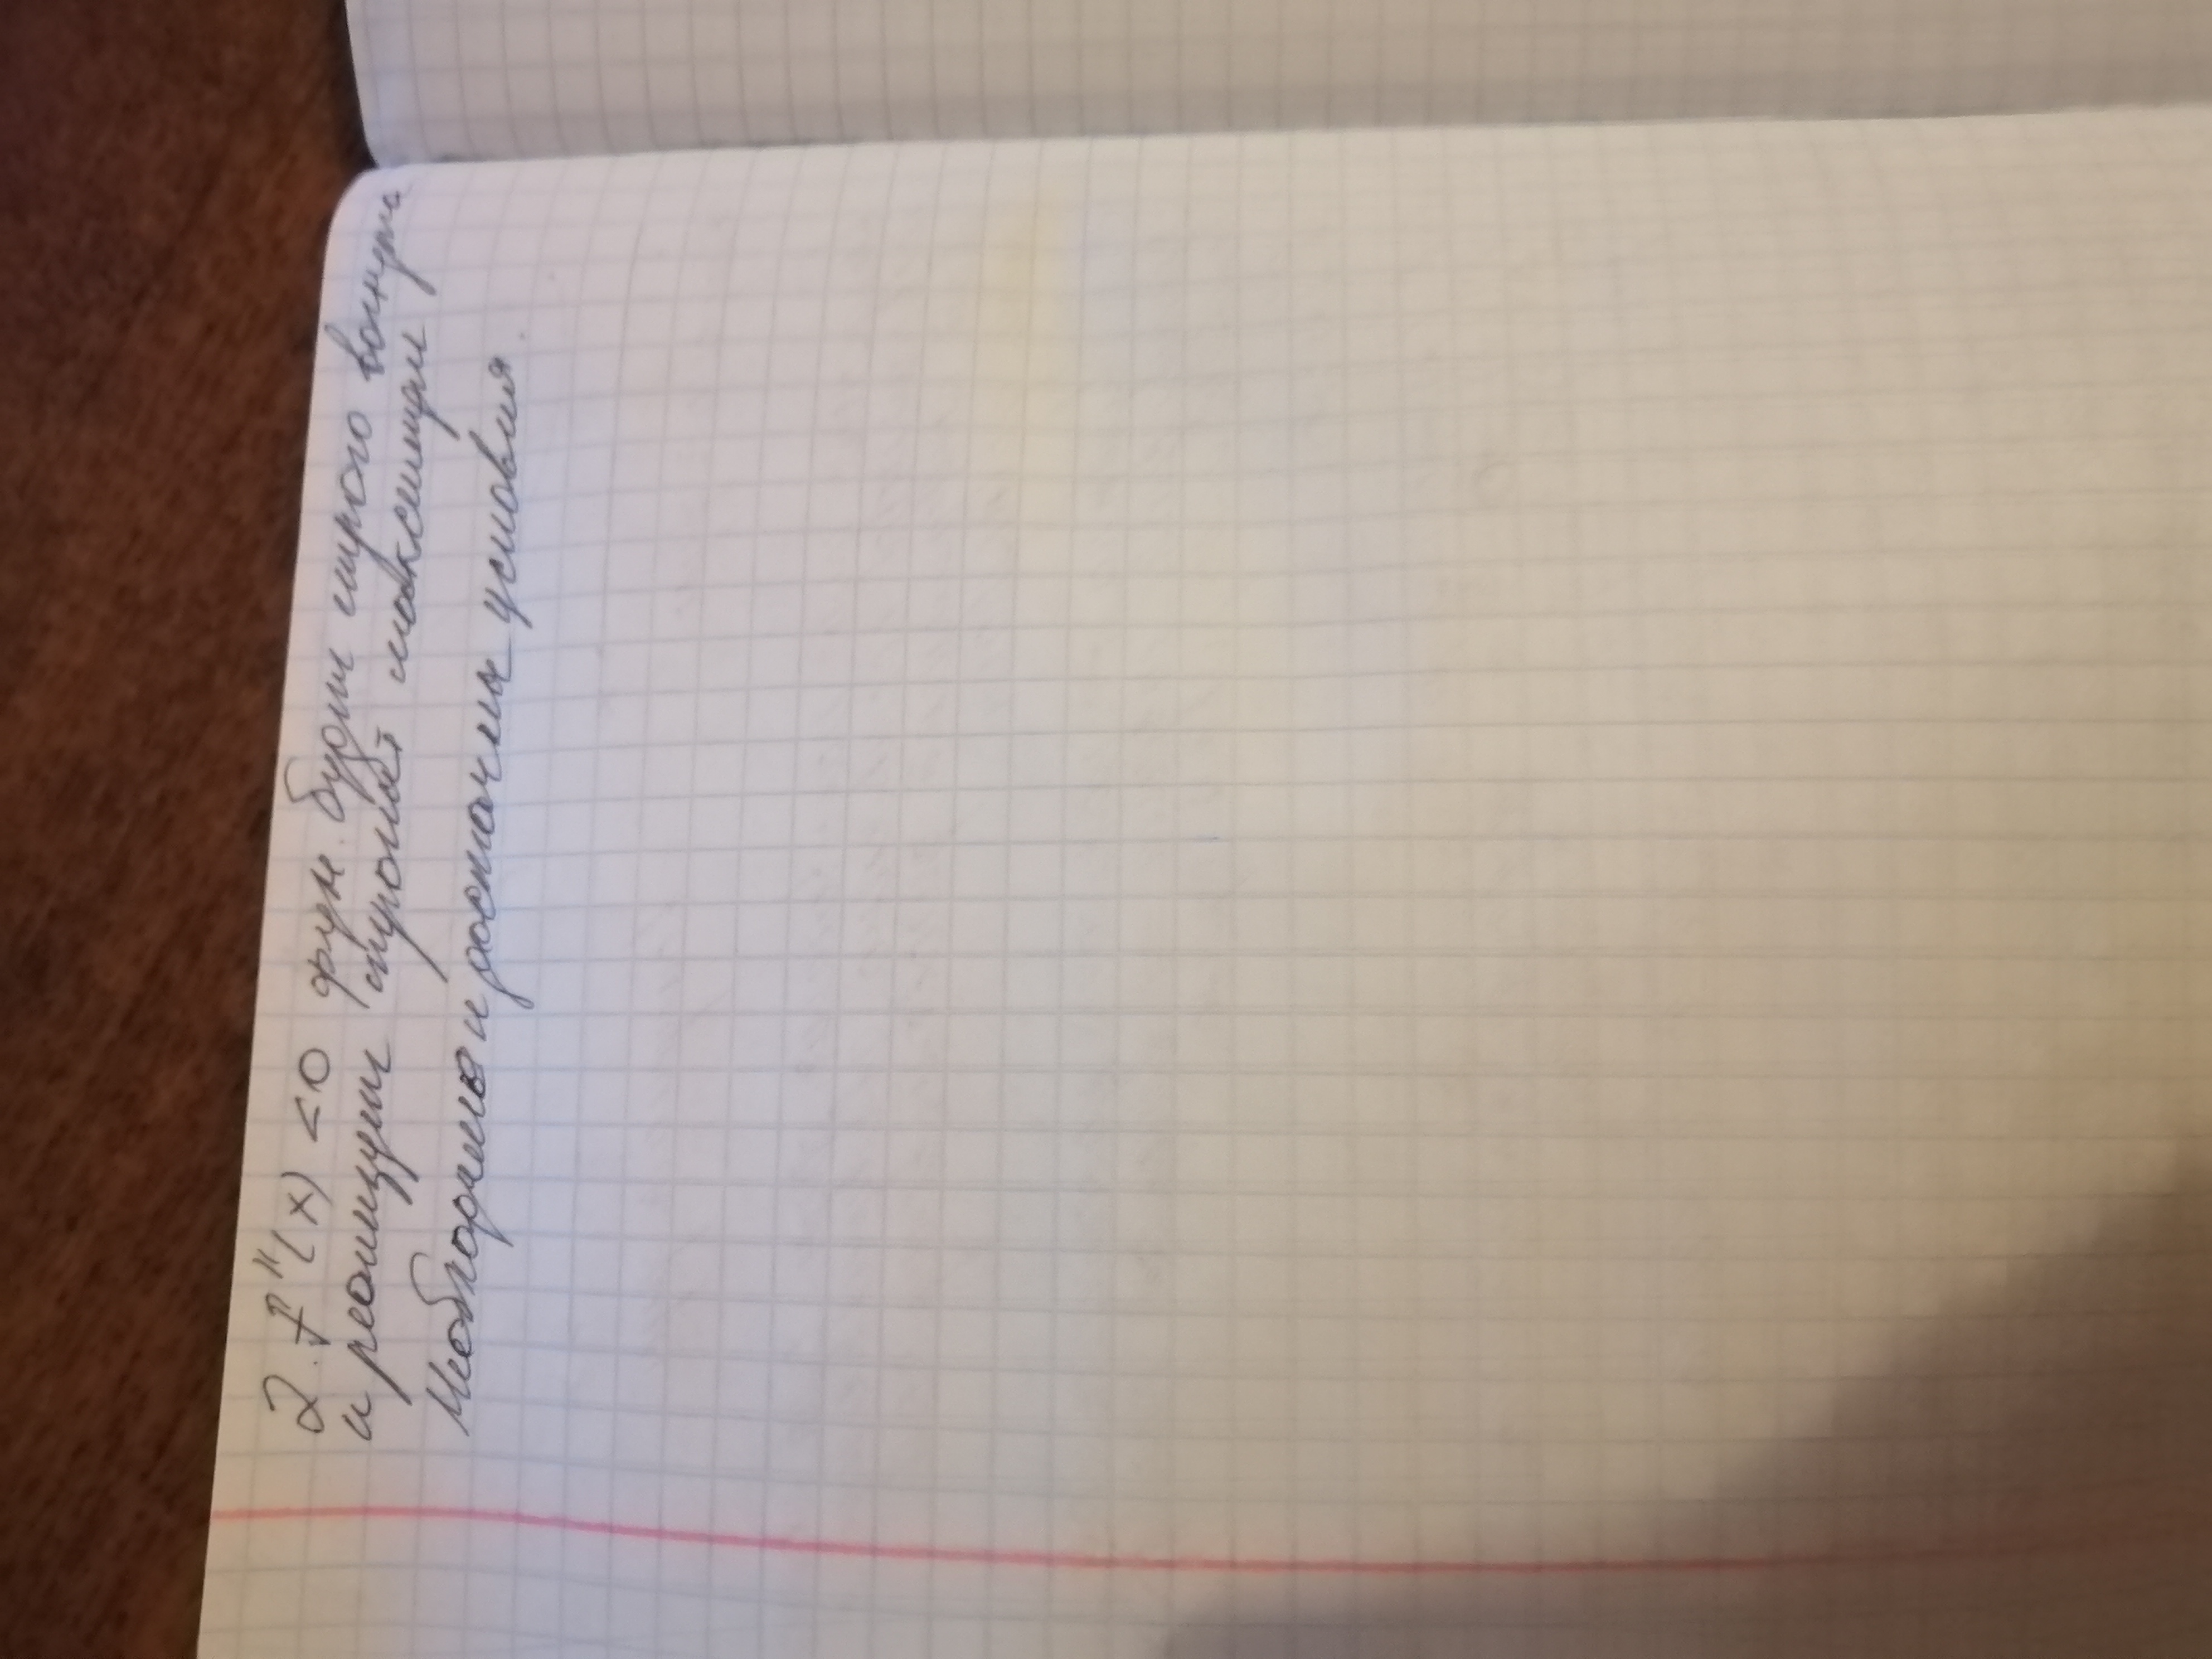 2. F"(x) <0 фун. будет строго вогнута
и реализует глобал максимум
Необходимые и достаточные условия.